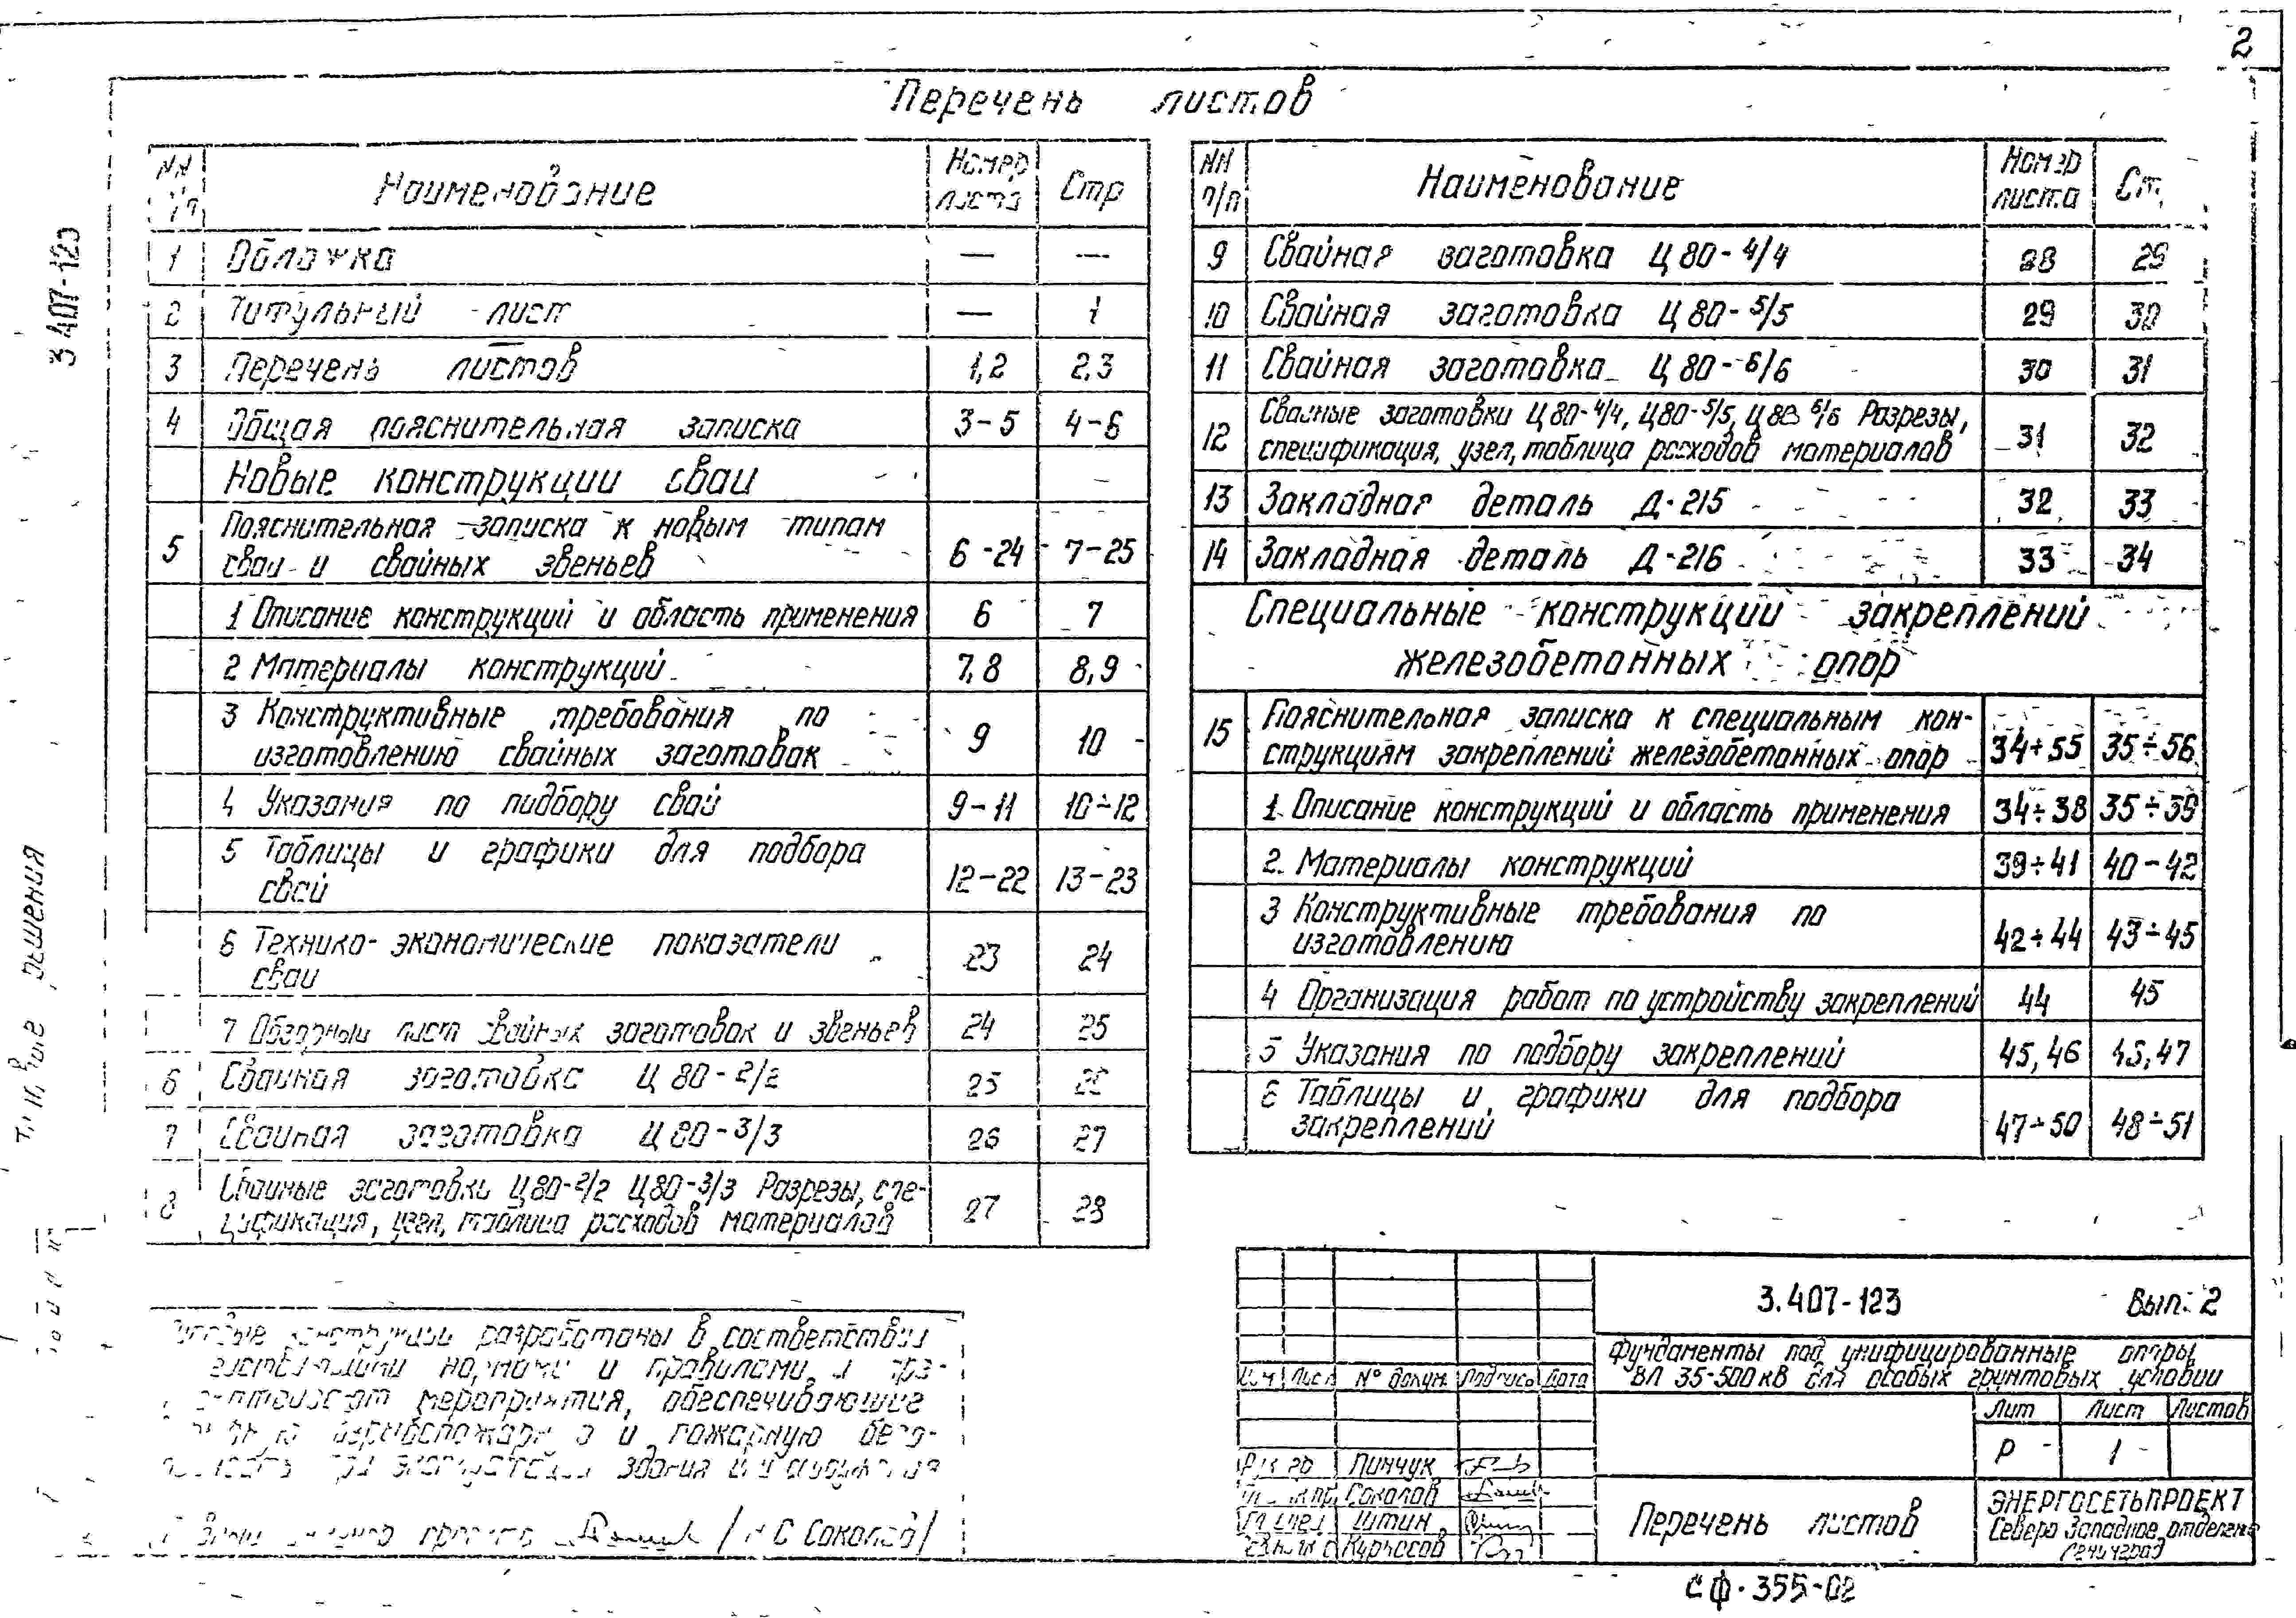 2
Перечень листов
3.407-123
решения
NN п/п Наименование Номер листа Стр
1 Обложка — —
2 Титульный лист — 1
3 Перечень листов 1,2 2,3
4 Общая пояснительная записка 3-5 4-6
Новые конструкции свай
5 Пояснительная записка к новым типам
свай и свайных звеньев 6-24 7-25
1 Описание конструкций и область применения 6 7
2 Материалы конструкций 7,8 8,9
3 Конструктивные требования по
изготовлению свайных заготовок 9 10
4 Указания по подбору свай 9-11 10÷12
5 Таблицы и графики для подбора
свай 12-22 13-23
6 Технико-экономические показатели
свай 23 24
7 Обзорный лист свайных заготовок и звеньев 24 25
6 Свайная заготовка Ц80-2/2 25 26
7 Свайная заготовка Ц80-3/3 26 27
8 Свайные заготовки Ц80-2/2 Ц80-3/3 Разрезы, спе-
цификация, узел, таблица расходов материалов 27 28
NN п/п Наименование Номер листа Ст.
9 Свайная заготовка Ц80-4/4 28 29
10 Свайная заготовка Ц80-5/5 29 30
11 Свайная заготовка Ц80-6/6 30 31
12 Свайные заготовки Ц80-4/4, Ц80-5/5, Ц80 6/6 Разрезы,
спецификация, узел, таблица расходов материалов 31 32
13 Закладная деталь Д-215 32 33
14 Закладная деталь Д-216 33 34
Специальные конструкции закреплений
железобетонных опор
15 Пояснительная записка к специальным кон-
струкциям закреплений железобетонных опор 34÷55 35÷56
1. Описание конструкций и область применения 34÷38 35÷39
2. Материалы конструкций 39÷41 40-42
3 Конструктивные требования по
изготовлению 42÷44 43÷45
4 Организация работ по устройству закреплений 44 45
5 Указания по подбору закреплений 45,46 46,47
6 Таблицы и графики для подбора
закреплений 47÷50 48÷51
разработаны в соответствии
нормами и правилами и пре-
мероприятия, обеспечивающие
и пожарную безо-
при эксплуатации здания
проекта /Соколов/
3.407-123 Вып. 2
Фундаменты под унифицированные опоры
ВЛ 35-500 кВ для особых грунтовых условий
Изм Лист № докум. Подпись Дата
Лит Лист Листов
Р 1
Рук гр Пинчук
Соколов
Штин
Перечень листов
ЭНЕРГОСЕТЬПРОЕКТ
Северо Западное отделение
Ленинград
СФ-355-02